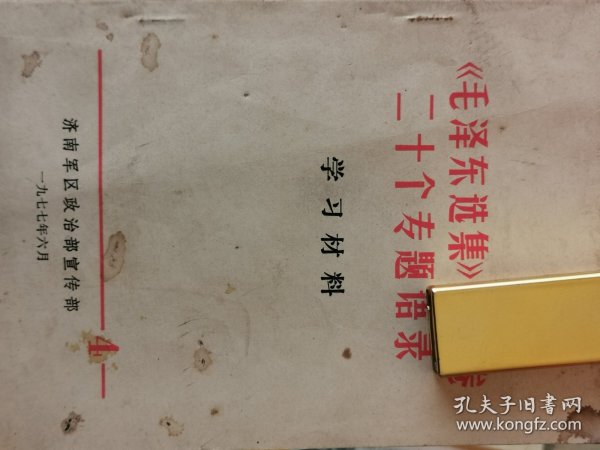 《毛泽东选集》
二十个专题语录
学习材料
4
济南军区政治部宣传部
一九七七年六月
孔夫子旧书网
www.kongfz.com